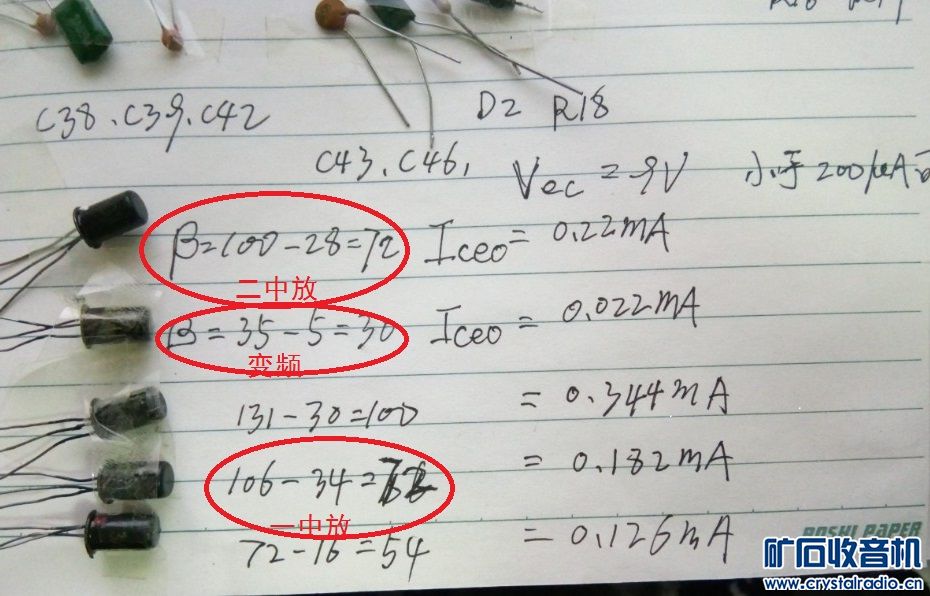 C38、C39、C42
D2 R18
C43、C46、
Vec=9V 小于200μA
β=100-28=72 Iceo=0.22mA
二中放
β=35-5=30 Iceo=0.022mA
变频
131-30=100 =0.344mA
106-34=72 =0.182mA
一中放
72-16=54 =0.126mA
矿石收音机
www.crystalradio.cn